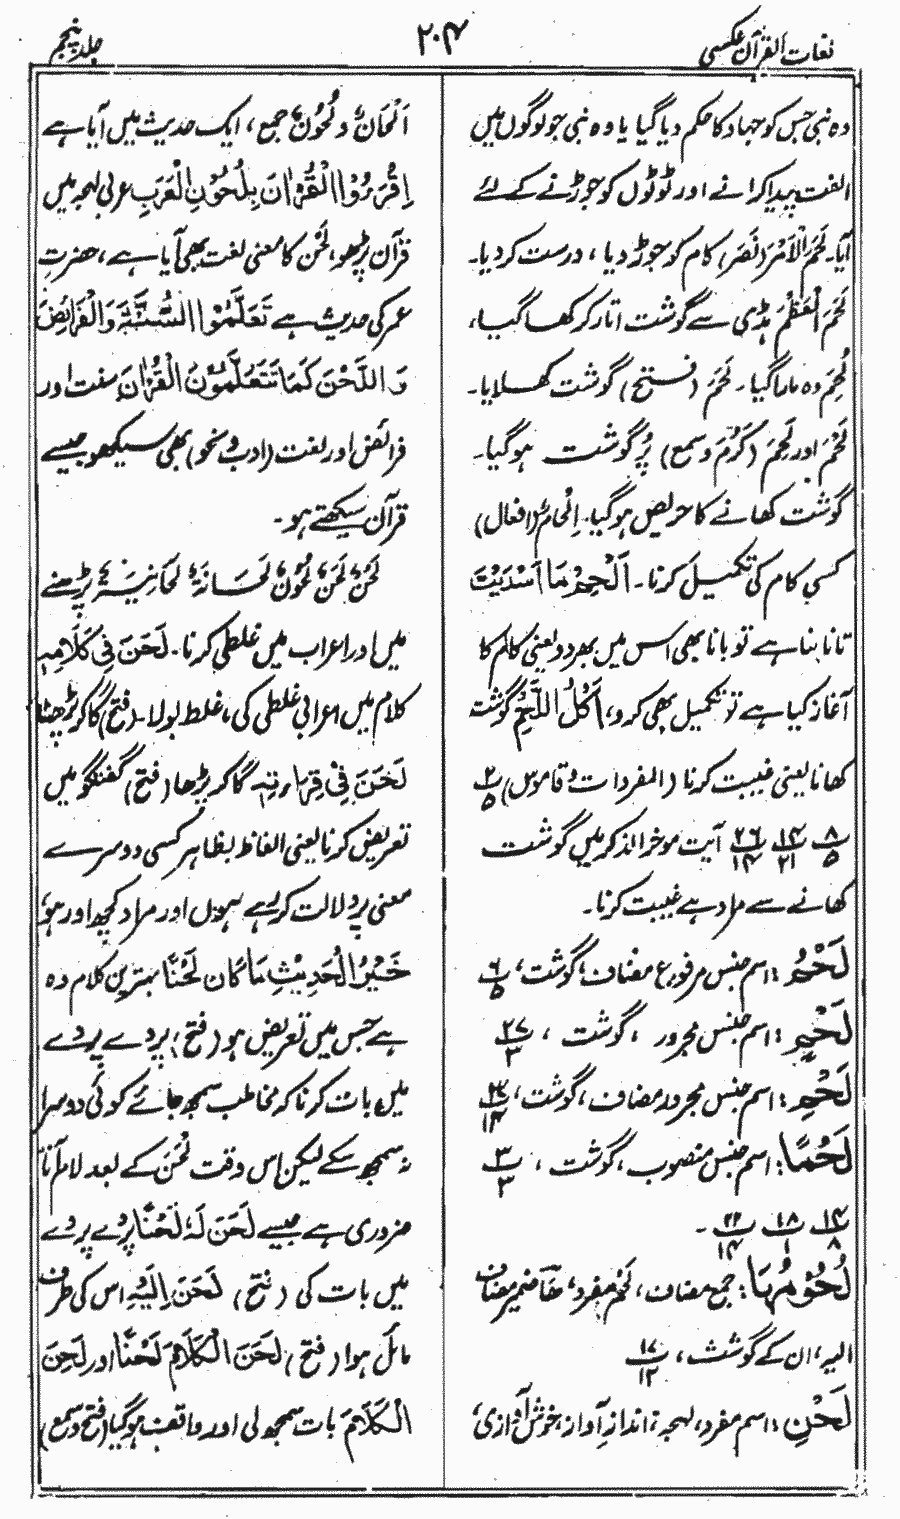 لغات القرآن عکسی
۲۰۴
جلد پنجم
وہ نبی جس کو جہاد کا حکم دیا گیا یا وہ نبی جو لوگوں میں
الفت پیدا کرانے اور ٹوٹوں کو جوڑنے کے لئے
آیا۔ لَحَمَ الْاَمْرَ (نَصَرَ) کام کو جوڑ دیا، درست کر دیا۔
لَحَمَ الْعَظْمَ ہڈی سے گوشت اتار کر کھا گیا،
لُحِمَ وہ مارا گیا۔ لَحَمَ (فتح) گوشت کھلایا۔
لَحُمَ اور لَحِمَ (کَرُمَ و سمع) پُر گوشت ہو گیا۔
گوشت کھانے کا حریص ہو گیا۔ اِلْحَامٌ (افعال)
کسی کام کی تکمیل کرنا۔ اَلْحِمْ مَا اَسْدَیْتَ
تانا بنا ہے تو بانا بھی اس میں بھر دو یعنی کام کا
آغاز کیا ہے تو تکمیل بھی کر دو، اَکْلُ اللَّحْمِ گوشت
کھانا یعنی غیبت کرنا (المفردات و قاموس) ۲/۵
۸/۵ ۱۴/۲۱ ۲۶/۱۴ آیت موخر الذکر میں گوشت
کھانے سے مراد ہے غیبت کرنا۔
لَحْمُ : اسم جنس مرفوع مضاف، گوشت، ۶/۵
لَحْمٍ : اسم جنس مجرور ، گوشت ، ۲۷/۳
لَحْمِ : اسم جنس مجرور مضاف، گوشت،
لَحْمًا : اسم جنس منصوب، گوشت ، ۳/۳
۱۴/۸ ۱۸/۱ ۲۲/۱۴ ۔
لُحُوْمُهَا : جمع مضاف، لَحْمٌ مفرد، ھَا ضمیر مضاف
الیہ، ان کے گوشت ، ۱۷/۱۲
لَحْنِ : اسم مفرد، لہجہ، اندازِ آواز، خوش آوازی،
اَلْحَانٌ و لُحُوْنٌ جمع ، ایک حدیث میں آیا ہے
اِقْرَءُوا الْقُرْاٰنَ بِلُحُوْنِ الْعَرَبِ عربی لہجہ میں
قرآن پڑھو، لَحْن کا معنی لغت بھی آیا ہے، حضرتِ
عمر کی حدیث ہے تَعَلَّمُوا السُّنَّةَ وَالْفَرَائِضَ
وَ اللَّحْنَ کَمَا تَتَعَلَّمُوْنَ الْقُرْاٰنَ سنت اور
فرائض اور لغت (ادب و نحو) بھی سیکھو جیسے
قرآن سیکھتے ہو۔
لَحْنٌ لَحَنٌ لُحُوْنٌ لَحَانَةٌ لَحَانِیَةٌ پڑھنے
میں اور اعراب میں غلطی کرنا۔ لَحَنَ فِیْ کَلَامِهٖ
کلام میں اعرابی غلطی کی، غلط بولا۔ (فتح) گا کر پڑھنا
لَحَنَ فِیْ قِرَاءَتِهٖ گا کر پڑھا (فتح) گفتگو میں
تعریض کرنا یعنی الفاظ بظاہر کسی دوسرے
معنی پر دلالت کر رہے ہوں اور مراد کچھ اور ہو،
خَیْرُ الْحَدِیْثِ مَا کَانَ لَحْنًا بہترین کلام وہ
ہے جس میں تعریض ہو (فتح)، پردے پردے
میں بات کرنا کہ مخاطب سمجھ جائے کوئی دوسرا
نہ سمجھ سکے لیکن اس وقت لَحْنَ کے بعد لام آنا
ضروری ہے جیسے لَحَنَ لَهٗ لَحْنًا پردے پردے
میں بات کی (فتح) لَحَنَ اِلَیْهِ اس کی طرف
مائل ہوا (فتح) لَحَنَ الْکَلَامَ لَحْنًا اور لَحِنَ
الْکَلَامَ بات سمجھ لی اور واقف ہو گیا (فتح و سمع)